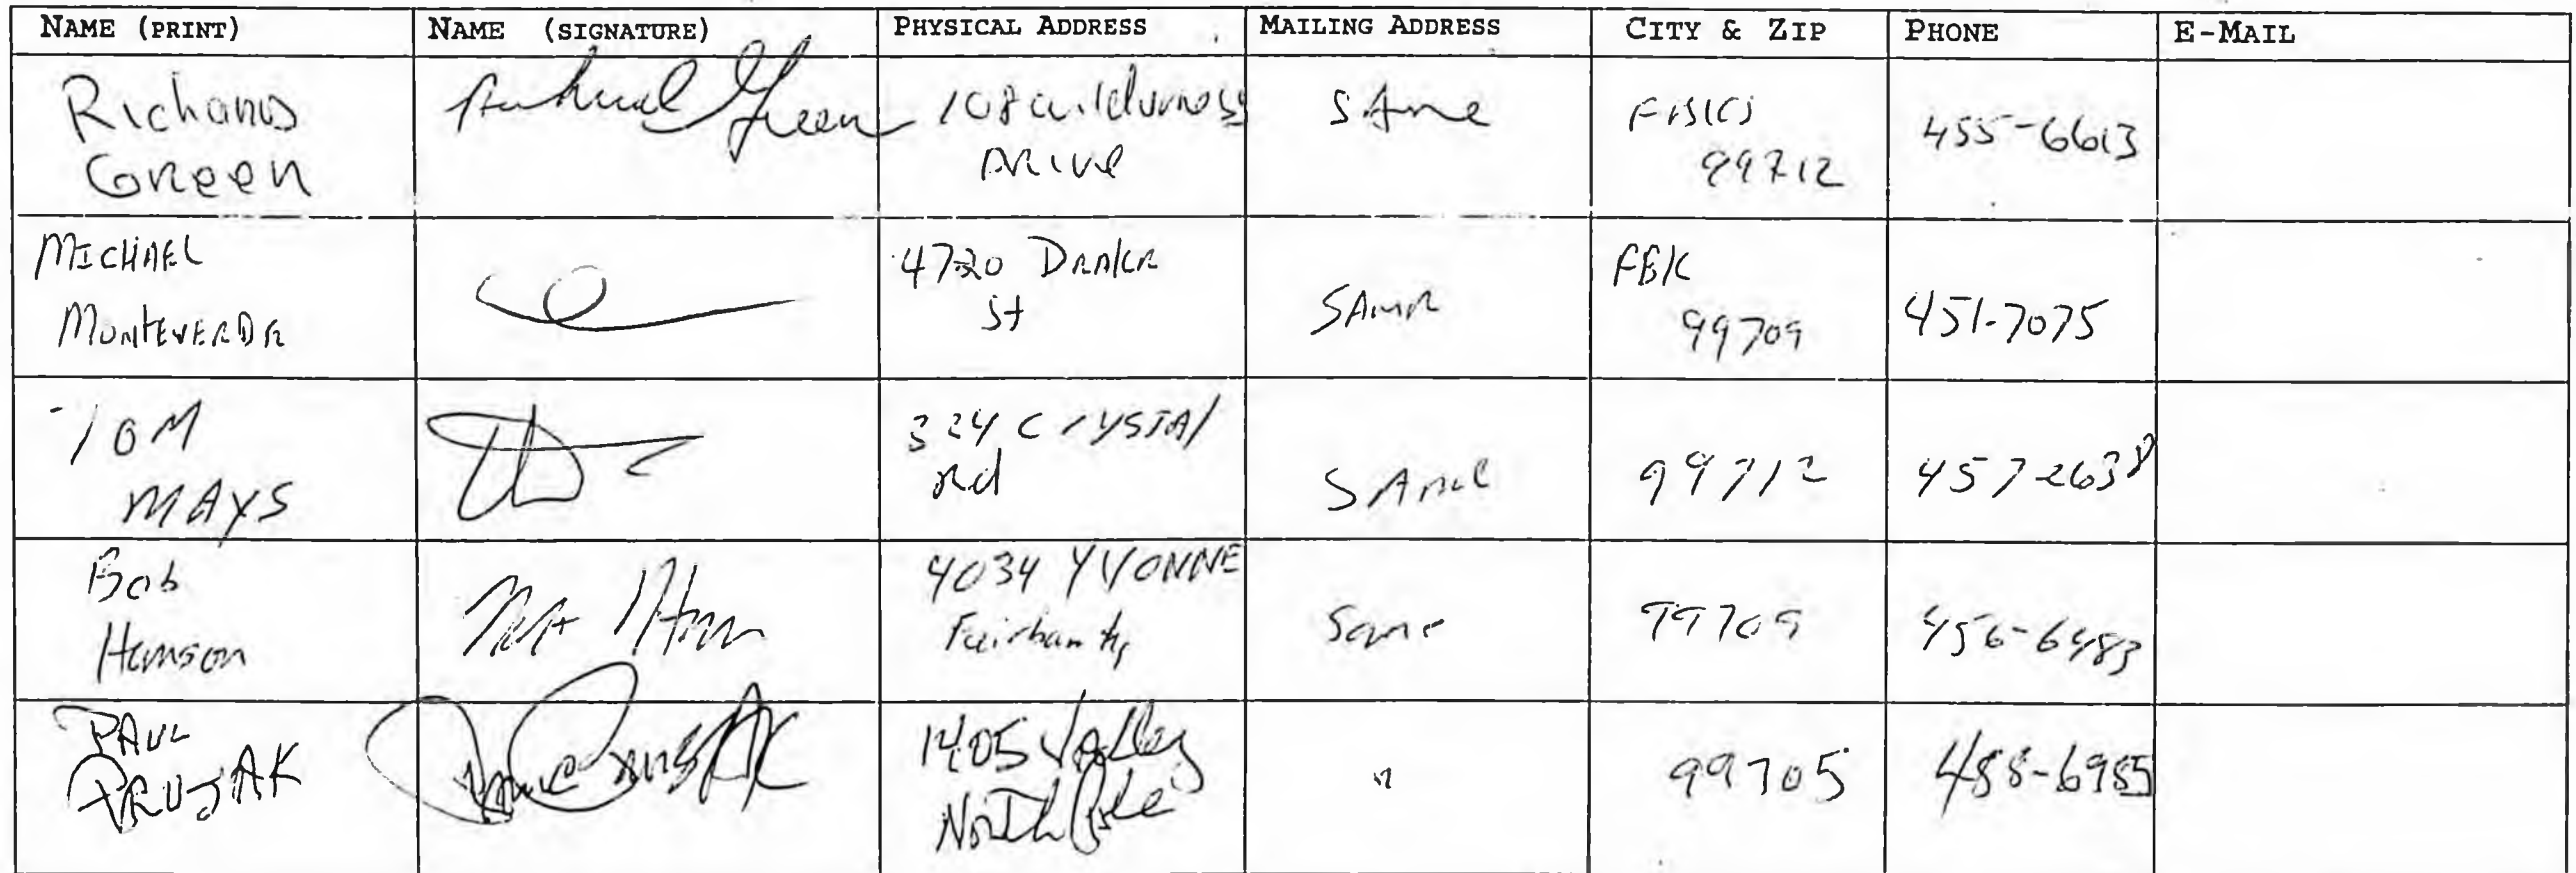 NAME (PRINT) NAME (SIGNATURE) PHYSICAL ADDRESS MAILING ADDRESS CITY & ZIP PHONE E-MAIL
Richard Green Richard Green 108 Wilderness Drive SAme FBKS 99712 455-6613
MICHAEL MONTEVERDE 4720 DRAKE St SAME FBK 99709 451-7075
TOM MAYS 324 CrYSTAl Rd SAme 99712 457-2638
Bob Hanson 4034 YVONNE Fairbanks Same 99709 456-6483
PAUL PRUSAK 1405 Valley North Pole " 99705 488-6985